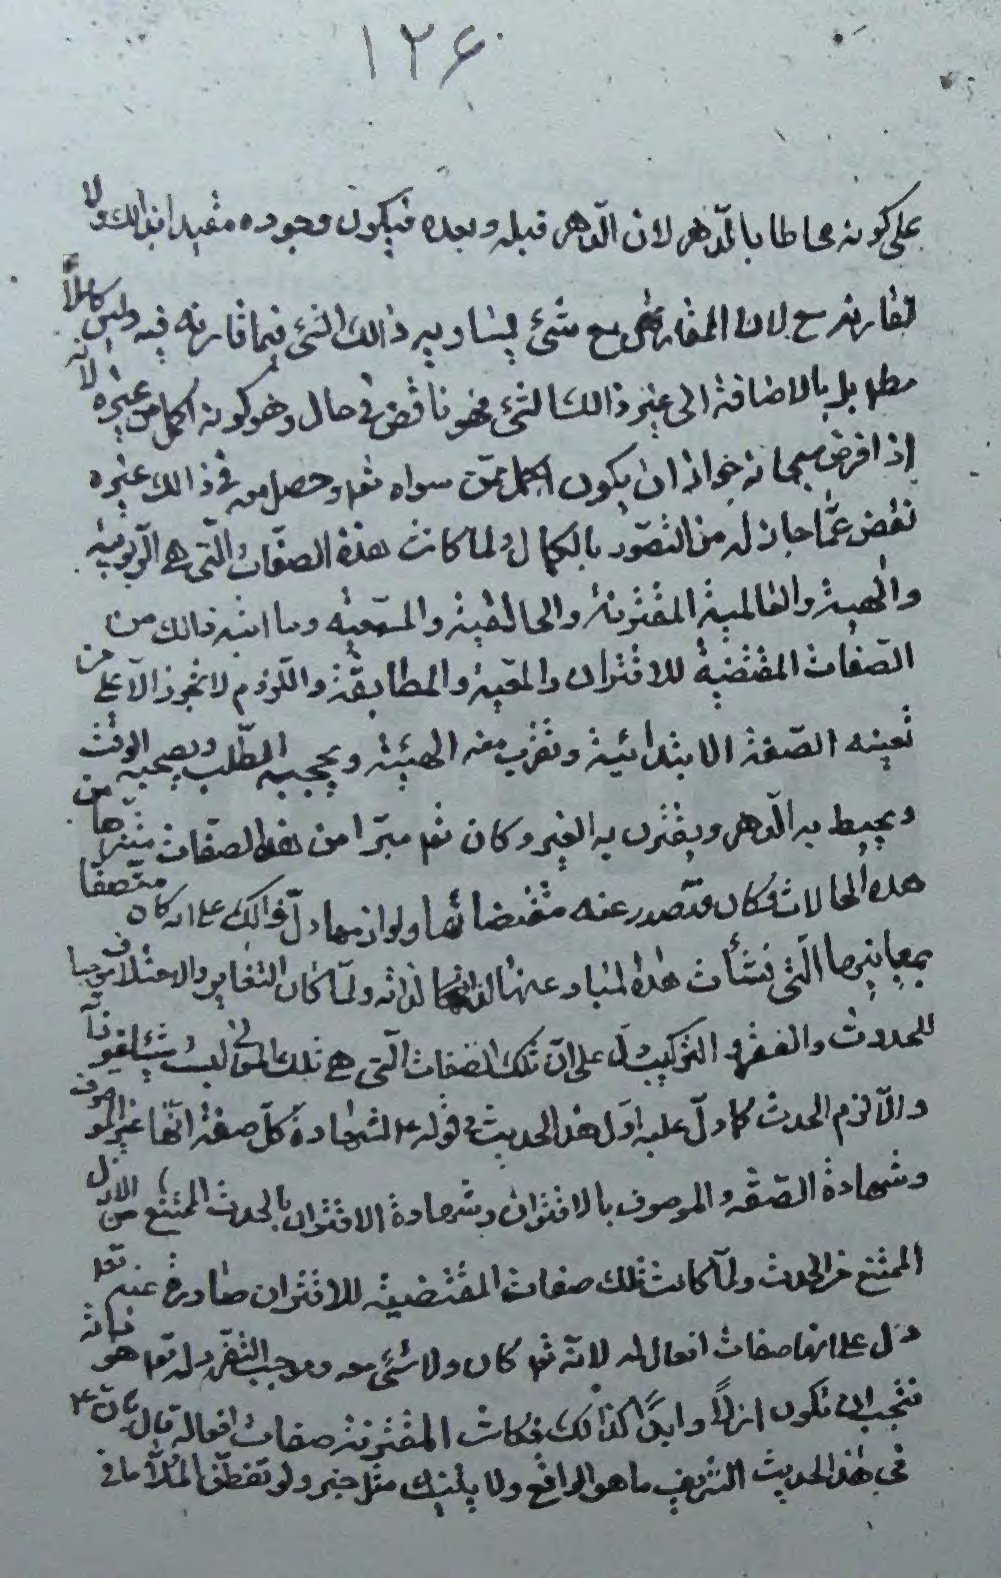 ١٢۶
على كونه محاطا بالدّهر لان الدّهر قبله وبعده فيكون وجوده مقيدا بذالك ولا
تقارنه ح لان المقارن مع شئ يساويه ذالك الشئ فيما قارنه فيه وليس كاملاً
مطلقا بل بالاضافة الى غير ذالك الشئ فهو ناقص فى حال وهو كونه اكمل من غيره لانه
اذا فرض سبحانه جواز ان يكون اكمل ممّن سواه تعم وحصل معه فى ذالك غيره
نقص عمّا جاز له من التصوّر بالكمال ولما كانت هذه الصفات التى هى الرّبوبيّة
والهيّة والعالمية المقترنة والخالقيّة والسّمعيّة وما اشبه ذالك من
الصّفات المقتضية للاقتران والمعيّة والمطابقة واللّزوم لا تجوز الّا على من
تعينه الصّفة الابتدائية وتقرّب منه الهيئة ويحجبه الطّلب ويصحبه الوقت
ويحيط به الدّهر ويقترن به الغير وكان تعم مبرّا من هذه الصفات منزّها من
هذه الحالات فكان قد تصدر عنه مقتضاتها ولوازمها دلّ ذالك على انه كان متّصفا
بمعانيها الّتى نشأت هذه المباد عنها لذاته ولمّا كان التغاير والاختلاف موجبا
للحدوث والفقر والتركيب دلّ على انّ تلك الصفات الّتى هى تلك المعانى ليست شيئا غير ذاته
والّا لزم الحدث كما دلّ عليه اوّل هذا الحديث فى قوله ع لشهادة كلّ صفة انّها غير الموصوف
وشهادة الصّفة والموصوف بالاقتران وشهادة الاقتران بالحدث الممتنع من الازل
الممتنع من الحدث ولمّا كانت تلك صفات المقتضية للاقتران صادرة عنه تعم
دلّ على انها صفات افعال له لانّه تعم كان ولا شئ معه وموجب التفرّد له تعم هو ذاته
فتجب ان تكون ازلاً وابدًا كذالك فكانت المقترنة صفات افعاله قال
فى هذا الحديث الشريف ما هو الواقع ولا ينبئك مثل خبير ولو تفطّن الملّا ما فى